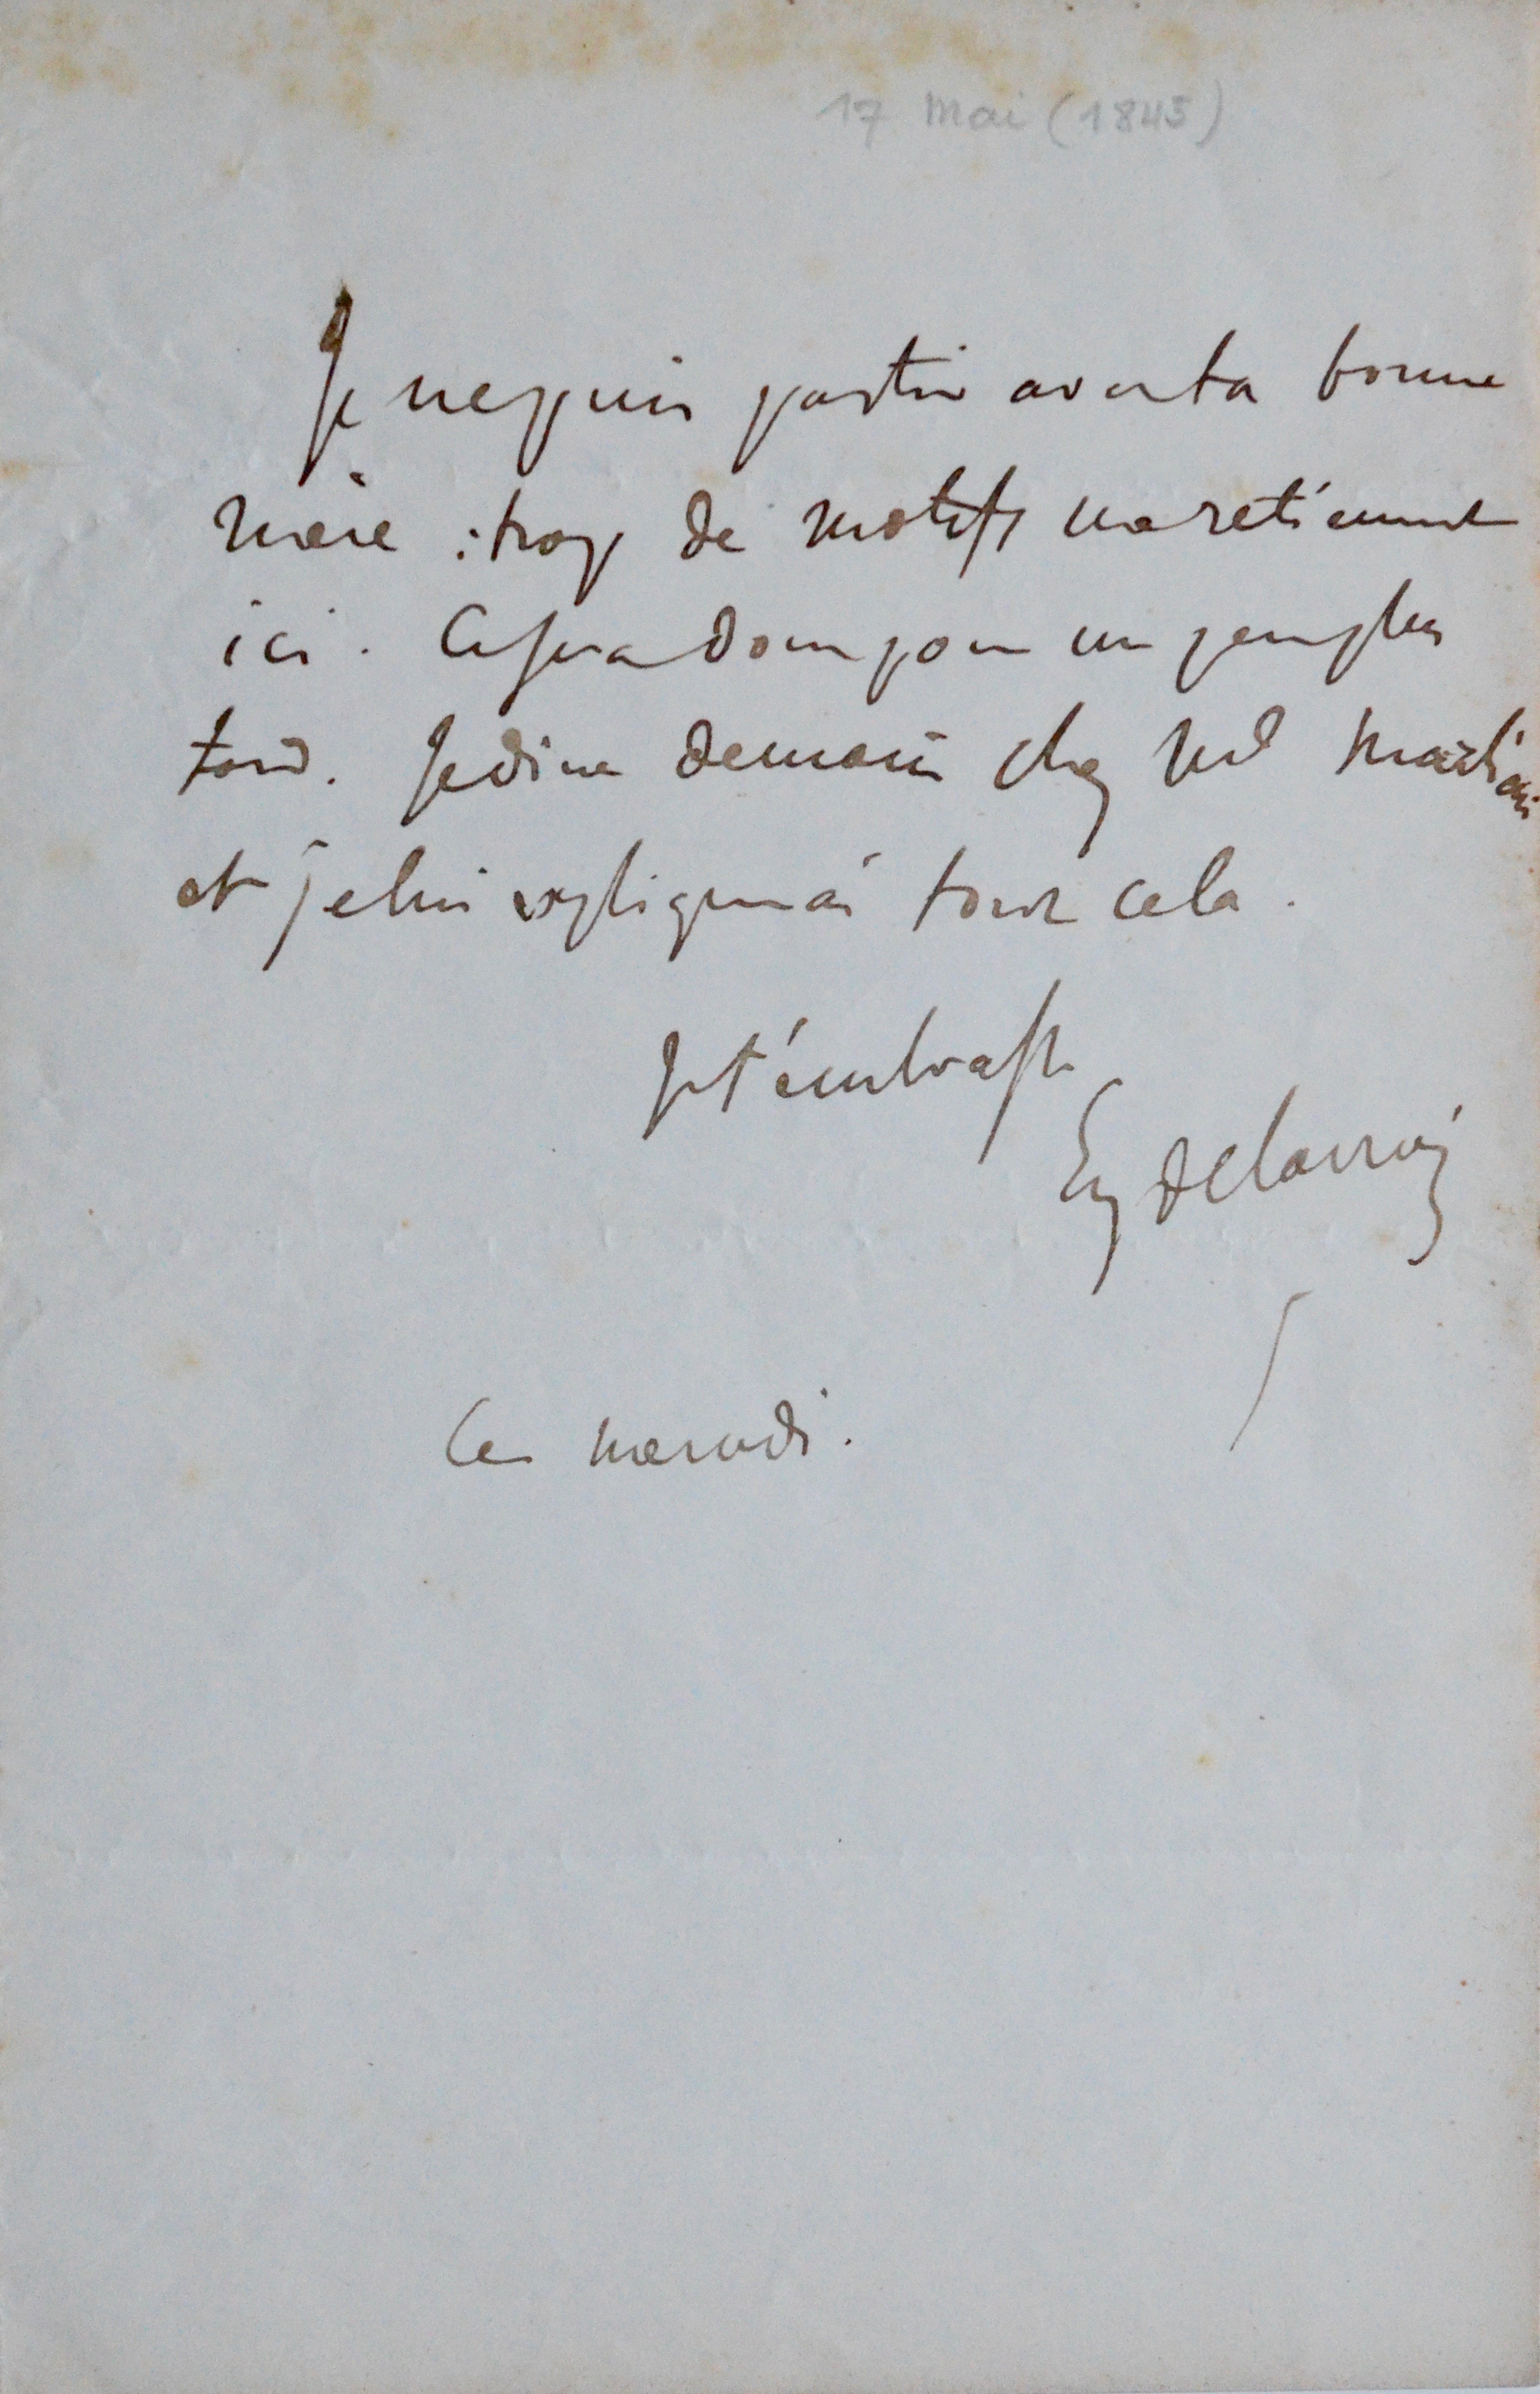 17 Mai (1845)
Je ne puis partir avec ta bonne
mère : trop de motifs me retiennent
ici. Ce sera donc pour un peu plus
tard. Je dine demain chez Md Marliani
et je lui expliquerai tout cela.
Je t'embrasse
Eug Delacroix
Ce mercredi.